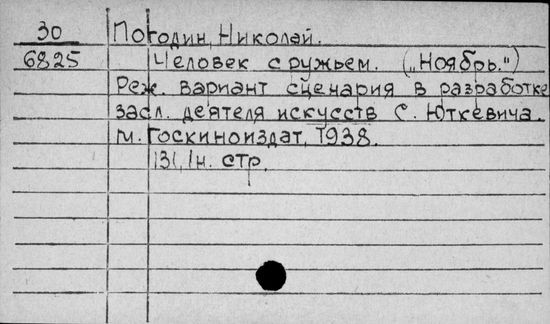 30 Погодин, Николай.
6825 Человек с ружьем. („Ноябрь.")
Реж. вариант сценария в разработке
засл. деятеля искусств С. Юткевича.
М. Госкиноиздат, 1938.
131, 1н. стр.